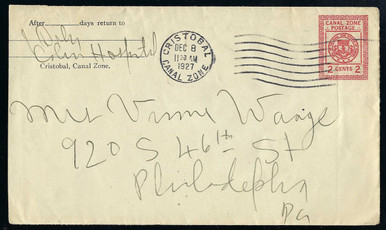 After______days return to
J Daly
Colon Hospital
Cristobal, Canal Zone.
CRISTOBAL
DEC 8
11:30 AM
1927
CANAL ZONE
CANAL ZONE
POSTAGE
2 CENTS 2
920 S 46th St
Philadelphia
Pa